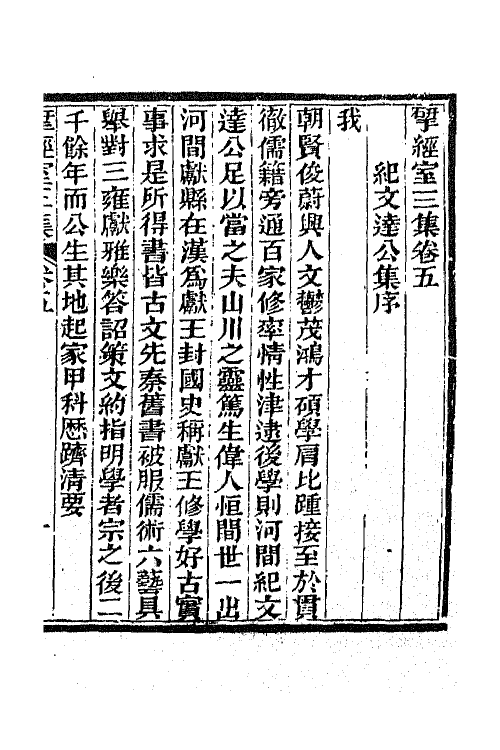 揅經室三集卷五
紀文達公集序
我
朝賢俊蔚興人文鬱茂鴻才碩學肩比踵接至於貫
徹儒籍旁通百家修率情性津逮後學則河間紀文
達公足以當之夫山川之靈篤生偉人恒間世一出
河間獻縣在漢爲獻王封國史稱獻王修學好古實
事求是所得書皆古文先秦舊書被服儒術六藝具
舉對三雍獻雅樂答詔策文約指明學者宗之後二
千餘年而公生其地起家甲科歷躋清要
揅經室三集 卷五 一